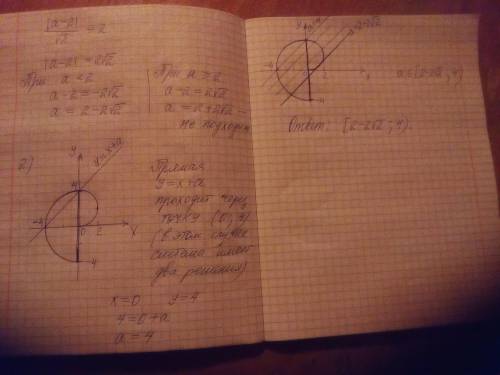 |a-2|
√2 = 2
|a-2| = 2√2
При a < 2
a-2 = -2√2
a = 2-2√2
При a > 2
a-2 = 2√2
a = 2+2√2 –
не подходит
2)
y
y=x+a
4
-4
0
2
x
-4
Прямая
y=x+a
проходит через
точку (0; 4)
(в этом случае
система имеет
два решения)
x=0 y=4
4=0+a
a=4
y
a=4
a=2-2√2
-4
0
2
x
-4
a∈[2-2√2; 4)
Ответ: [2-2√2; 4).